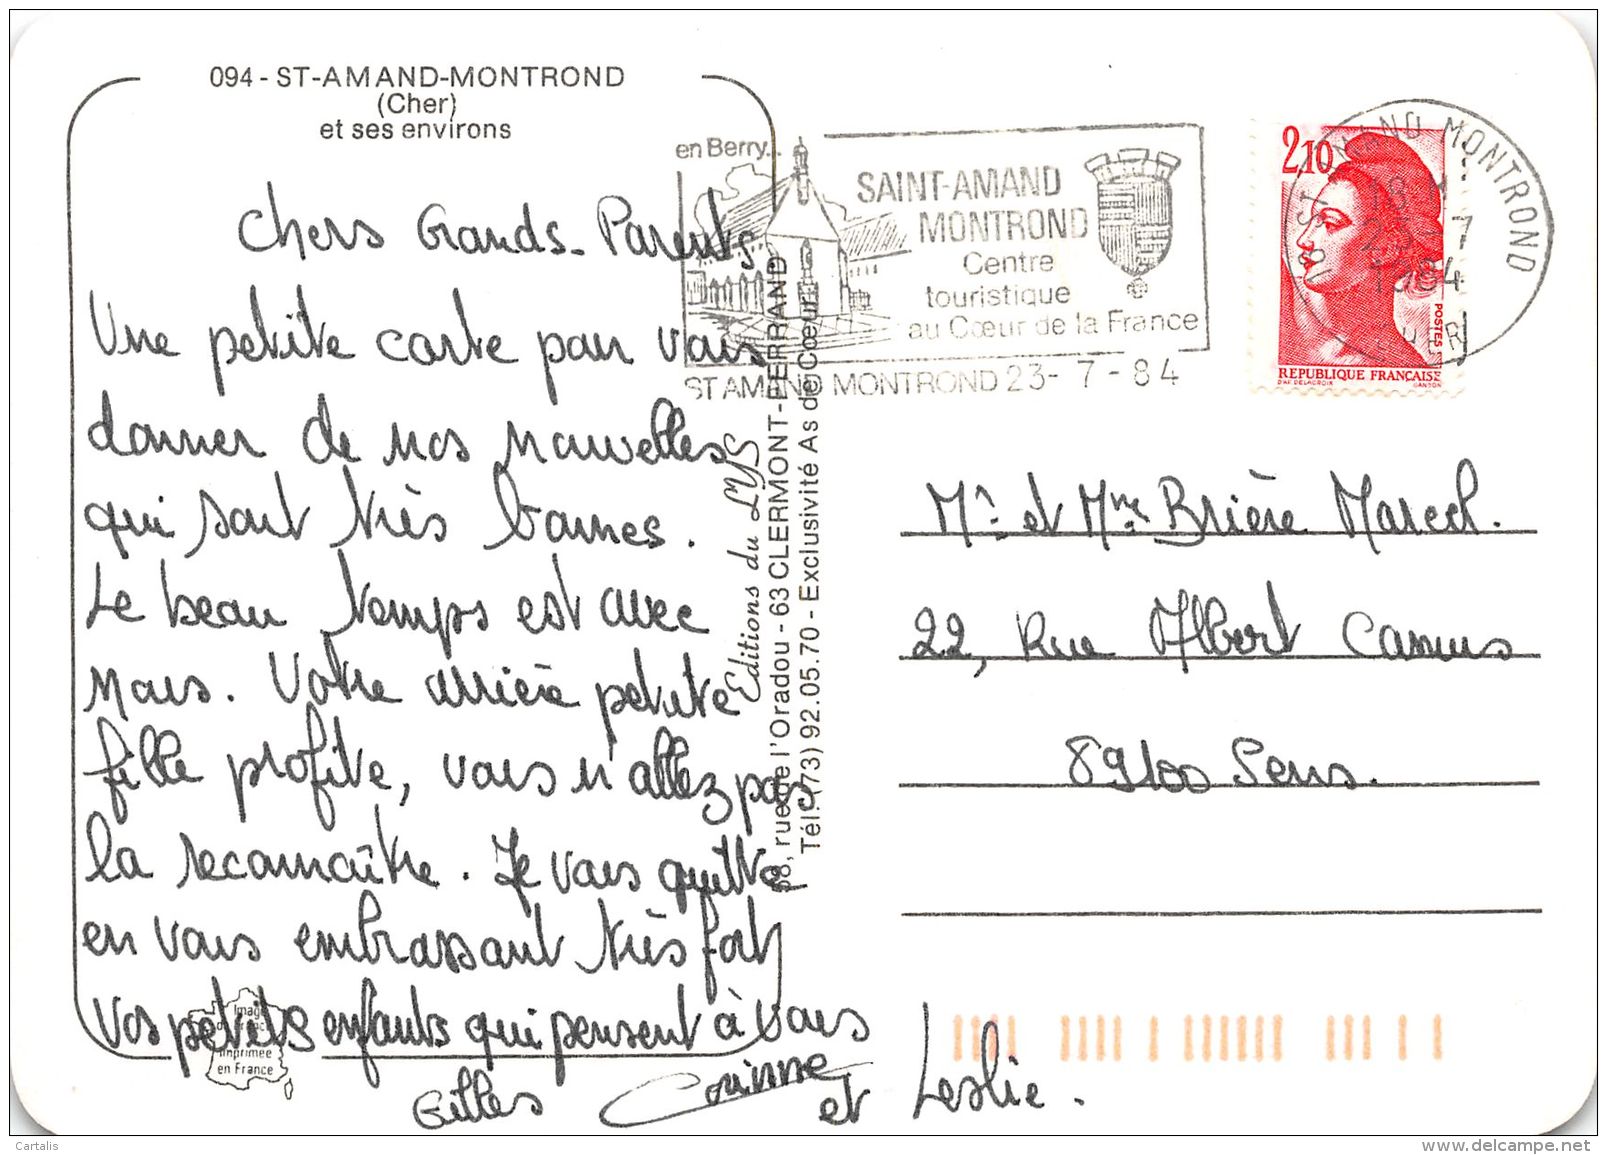 094 - ST-AMAND-MONTROND
(Cher)
et ses environs
Chers Grands-Parents
Une petite carte pour vous
donner de nos nouvelles
qui sont très bonnes.
Le beau temps est avec
nous. Votre arrière petite
fille profite, vous n'allez pas
la reconnaître. Je vous quitte
en vous embrassant très fort
Vos petits enfants qui pensent à vous
Gilles Corinne et Leslie.
Image
de France
imprimée
en France
Editions du LYS
68, rue de l'Oradou - 63 CLERMONT-FERRAND
Tél. (73) 92.05.70 - Exclusivité As de Cœur
en Berry...
SAINT-AMAND
MONTROND
Centre
touristique
au Cœur de la France
ST AMAND MONTROND 23- 7 - 84
2,10
POSTES
REPUBLIQUE FRANÇAISE
D'AP. DELACROIX GANDON
ST AMAND MONTROND
18 H
23 - 7
1984
CHER
Mr et Mme Brière Marcel.
22, Rue Albert Camus
89100 Sens.
Cartalis
www.delcampe.net